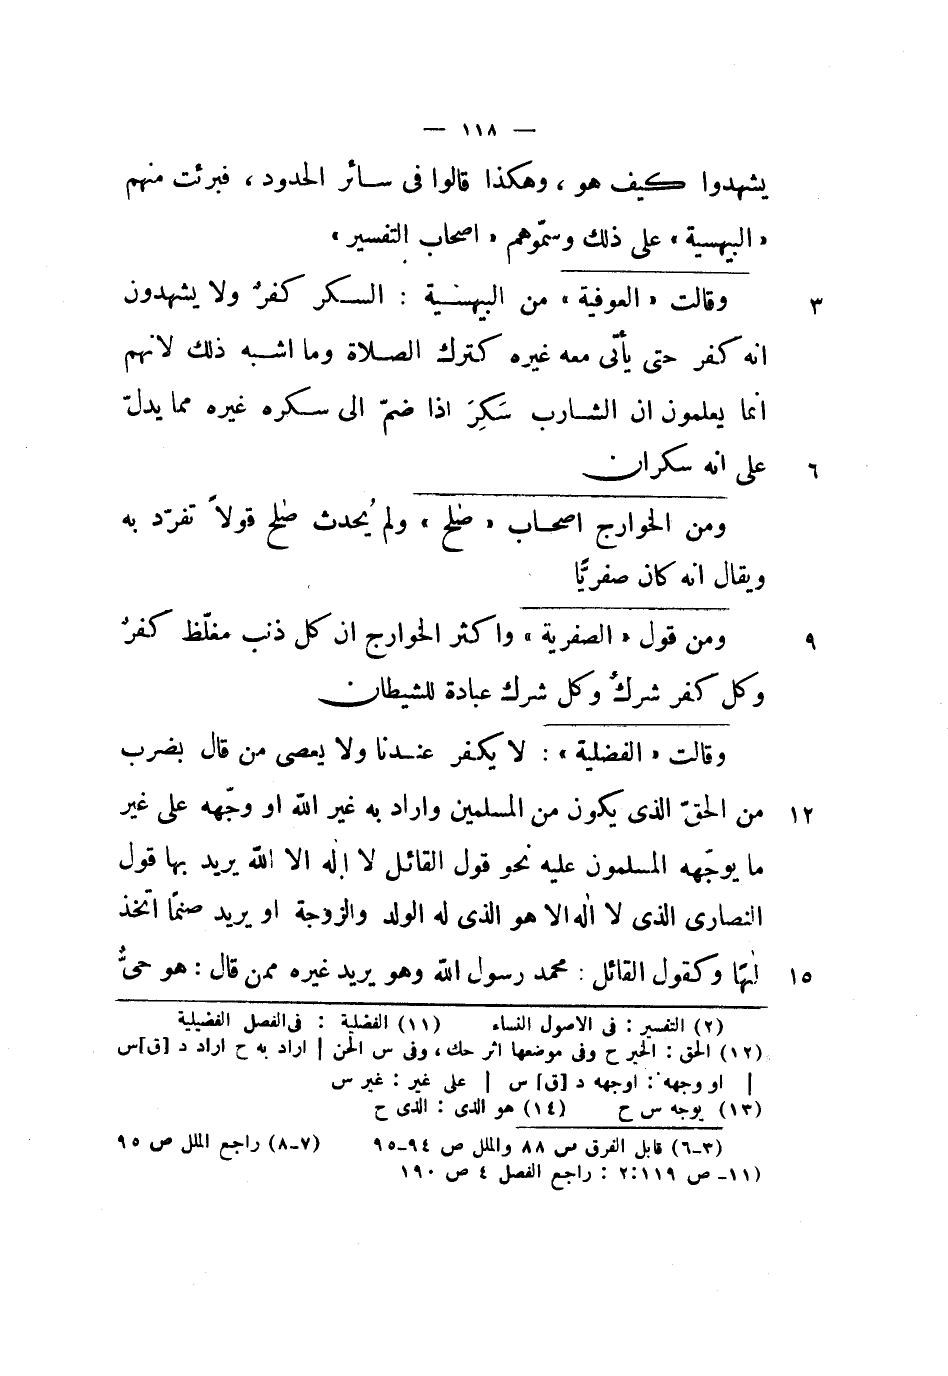 — ١١٨ —
يشهدوا كيف هو ، وهكذا قالوا فى سائر الحدود ، فبرئت منهم
« البيهسية » على ذلك وسمّوهم « اصحاب التفسير »
٣ وقالت « العوفية » من البيهسية : السكر كفرٌ ولا يشهدون
انه كفر حتى يأتى معه غيره كترك الصلاة وما اشبه ذلك لانهم
انما يعلمون ان الشارب سَكِرَ اذا ضمّ الى سكره غيره مما يدلّ
٦ على انه سكران
ومن الخوارج اصحاب « صٰلح » ولم يُحدث صٰلح قولاً تفرّد به
ويقال انه كان صفريًّا
٩ ومن قول « الصفرية » واكثر الخوارج ان كل ذنب مغلّظ كفرٌ
وكل كفر شركٌ وكل شرك عبادة للشيطان
وقالت « الفضلية » : لا يكفر عندنا ولا يعصى من قال بضرب
١٢ من الحقّ الذى يكون من المسلمين واراد به غير الله او وجّهه على غير
ما يوجّهه المسلمون عليه نحو قول القائل لا إلٰه الا الله يريد بها قول
النصارى الذى لا الٰه الا هو الذى له الولد والزوجة او يريد صنمًا اتخذ
١٥ إلٰهًا وكقول القائل : محمد رسول الله وهو يريد غيره ممن قال : هو حىٌّ
(٢) التفسير : فى الاصول النساء (١١) الفضلية : فى الفصل الفضيلية
(١٢) الحق : الخبر ح وفى موضعها اثر حك ، وفى س الحن | اراد به ح اراد د [ق]س
| او وجهه : اوجهه د [ق] س | على غير : غير س
(١٣) يوجه س ح (١٤) هو الذى : الذى ح
(٣-٦) قابل الفرق ص ٨٨ والملل ص ٩٤-٩٥ (٧-٨) راجع الملل ص ٩٥
(١١- ص ٢:١١٩ : راجع الفصل ٤ ص ١٩٠